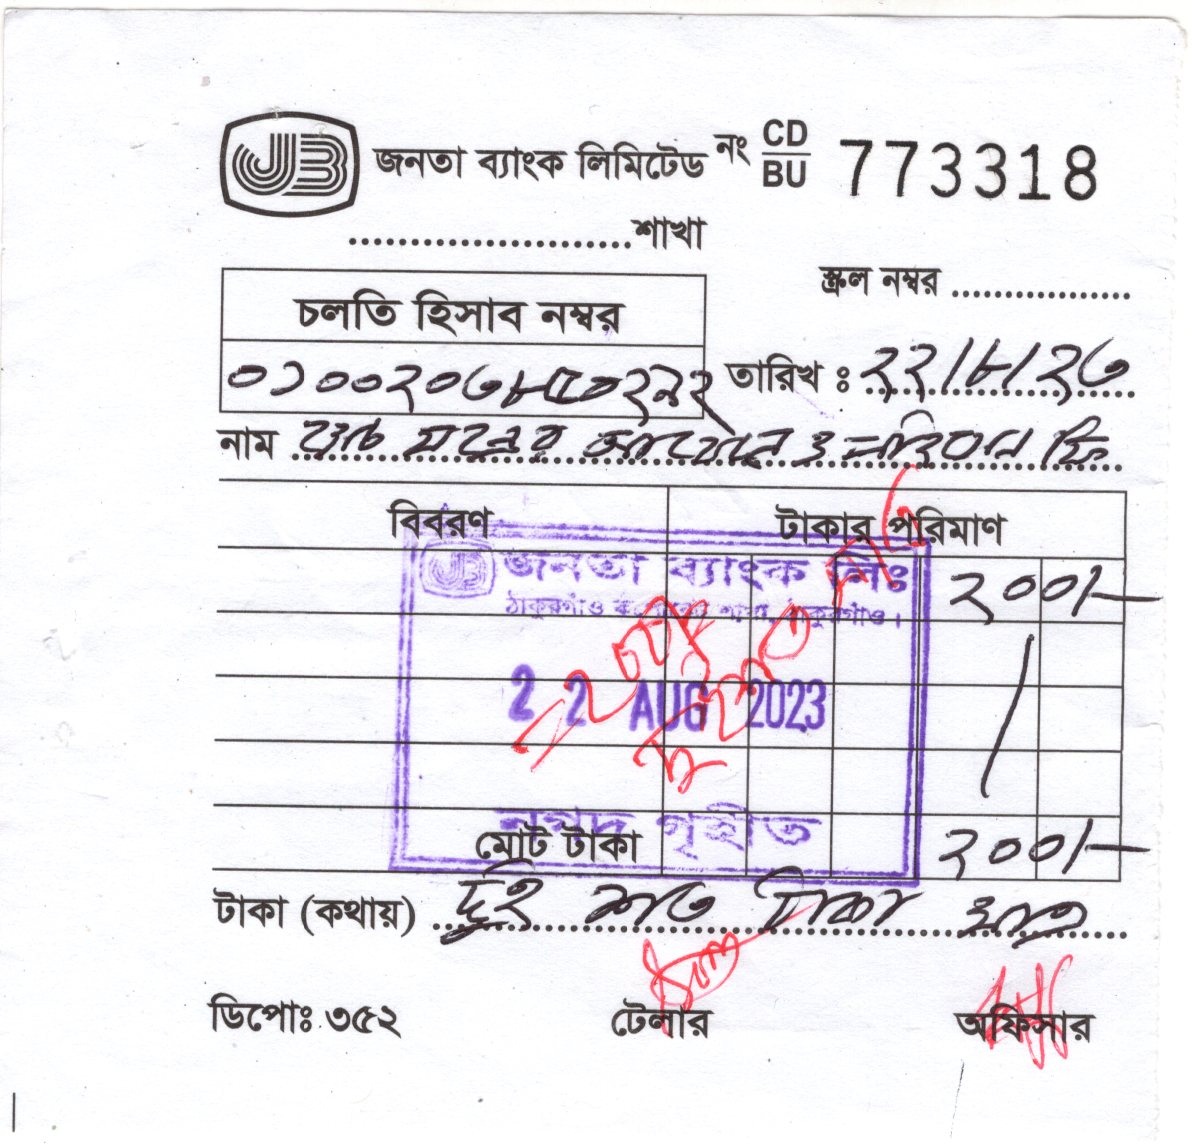 JB জনতা ব্যাংক লিমিটেড নং CD/BU 773318
......................শাখা
স্ক্রল নম্বর ..................
চলতি হিসাব নম্বর
তারিখ : ২২/৮/২৩
নাম ও ফি
বিবরণ টাকার পরিমাণ
JB জনতা ব্যাংক লিঃ
২০০/-
ঠাকুরগাঁও শাখা, ঠাকুরগাঁও।
22 AUG 2023
নগদ গৃহীত
মোট টাকা ২০০/-
টাকা (কথায়) দুই শত টাকা মাত্র
ডিপোঃ ৩৫২ টেলার অফিসার